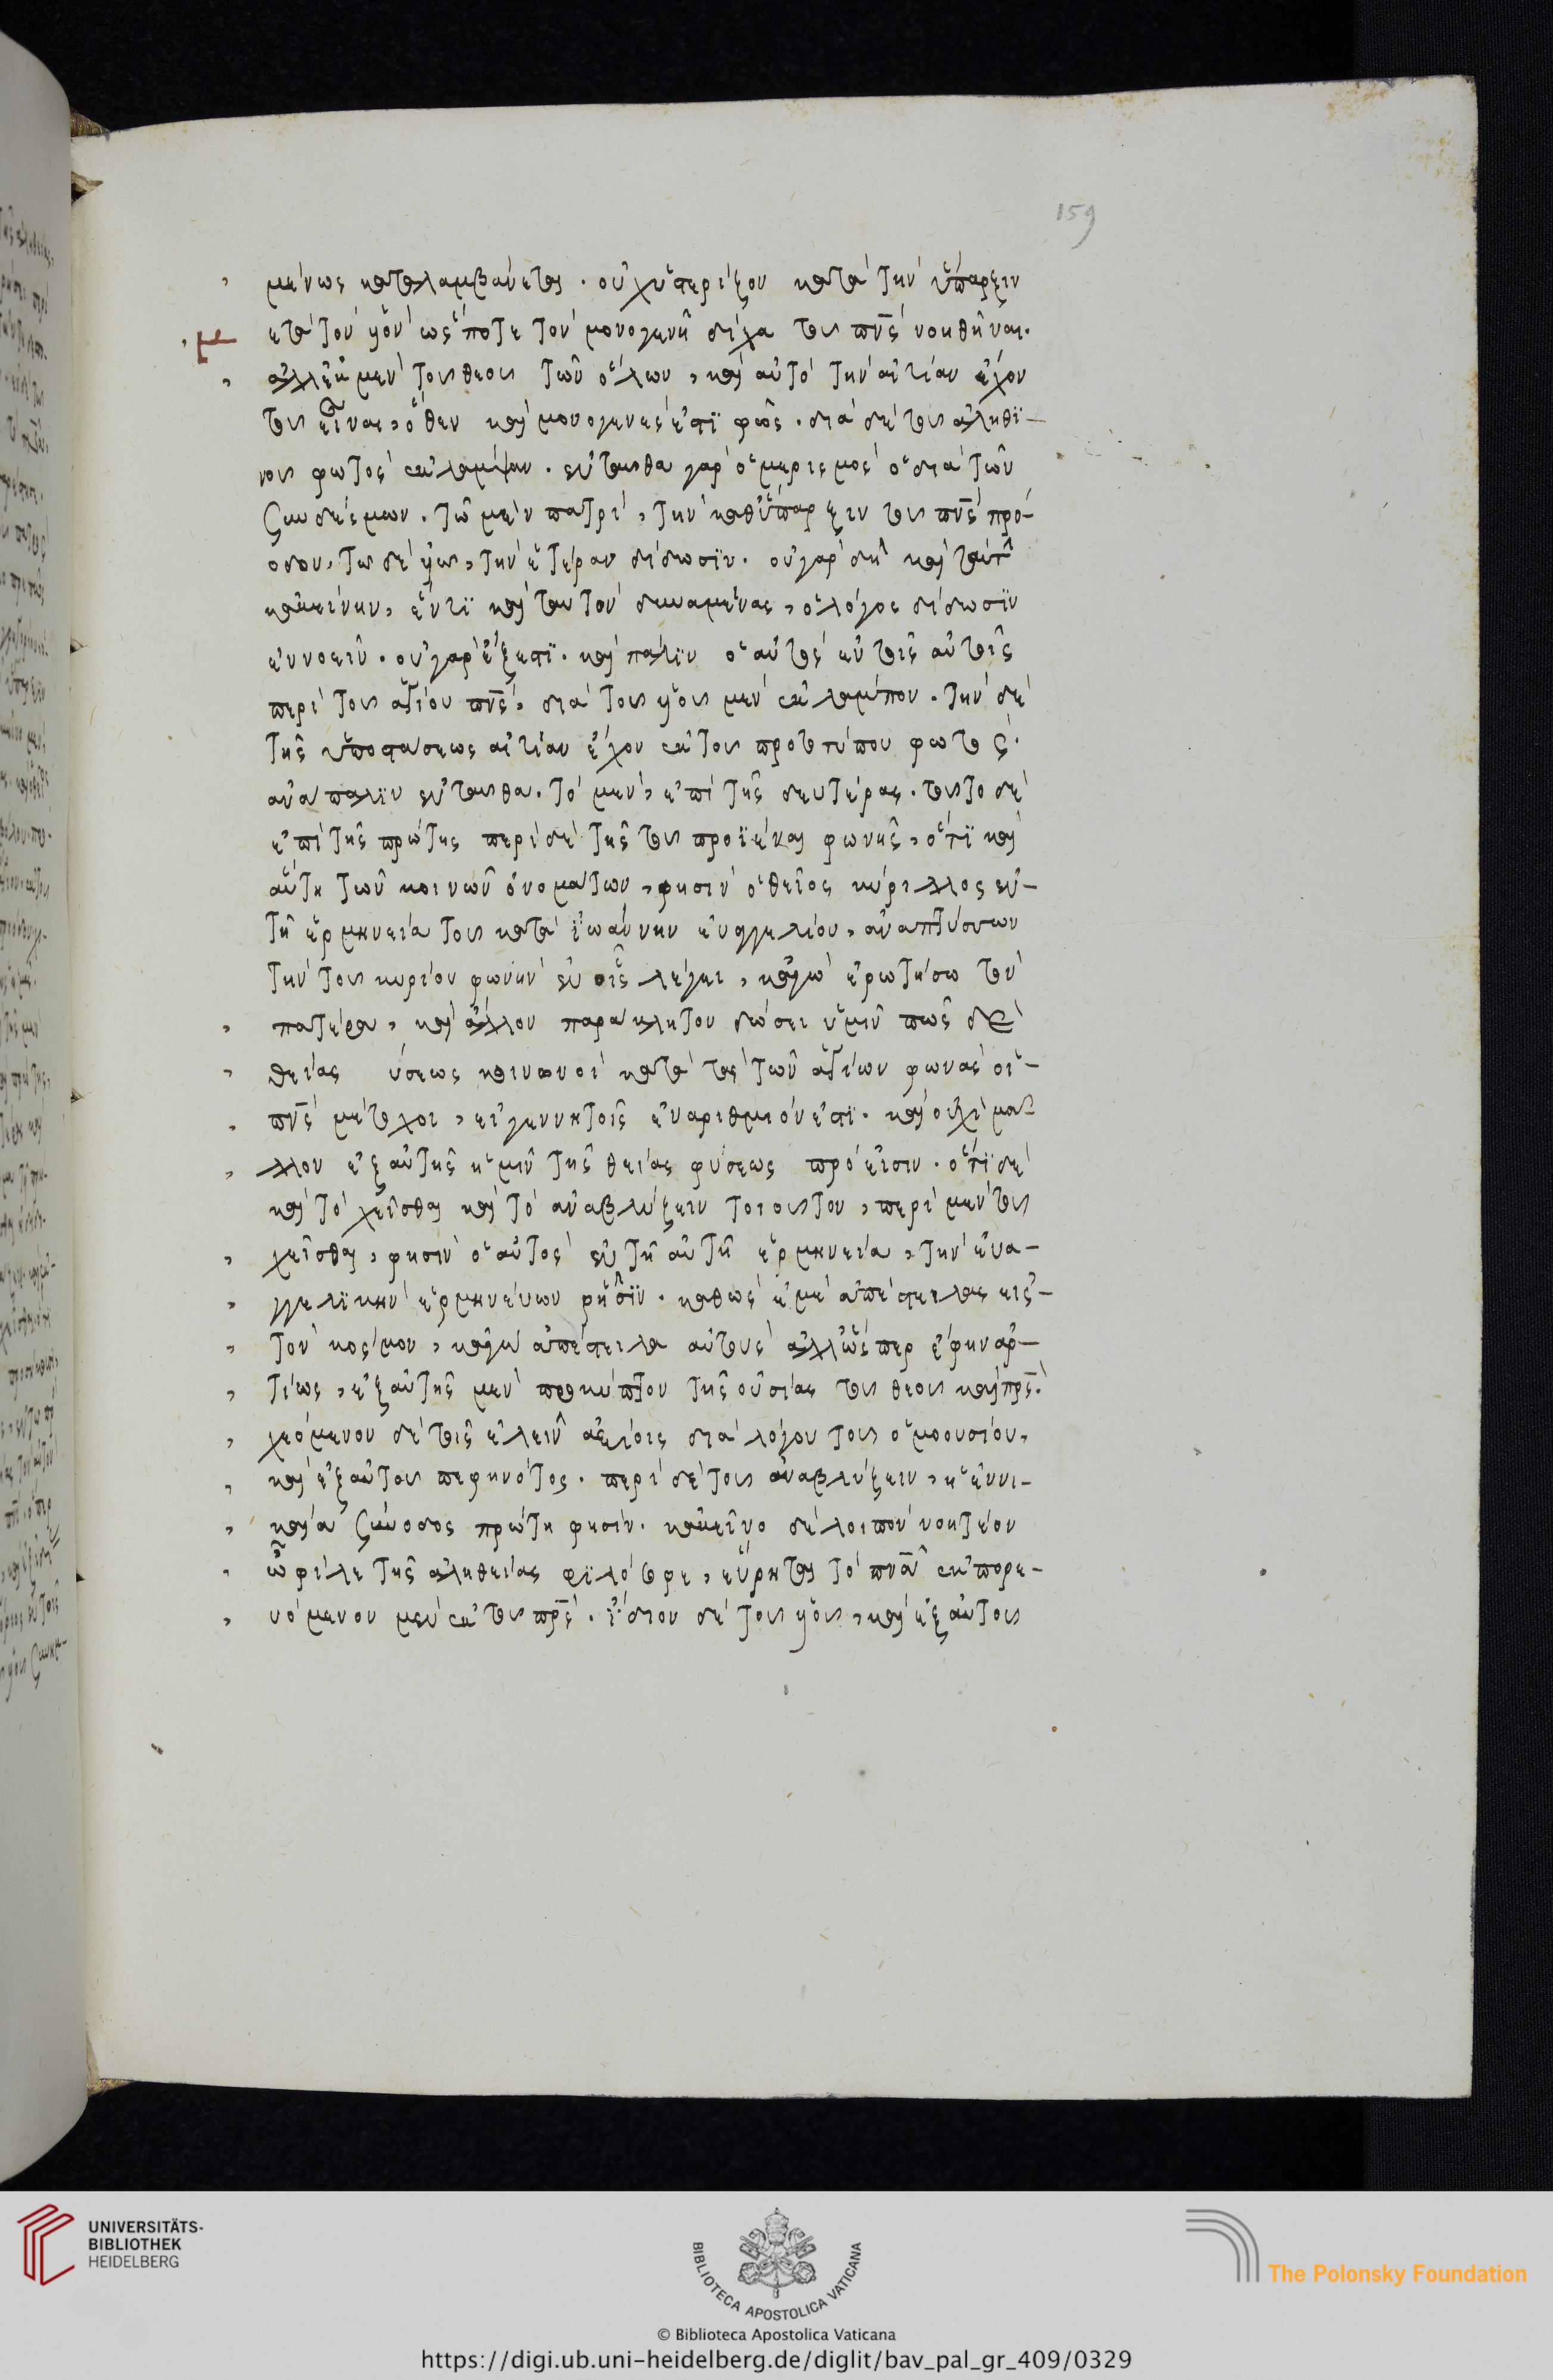 159
μένως καταλαμβάνεται. οὐχ ὑστερίζον κατὰ τὴν ὕπαρξιν
μετὰ τὸν υἱὸν ὥς ποτε τὸν μονογενῆ δίχα τοῦ πν̅ς νοηθῆναι.
ἀλλ' ἐκ μὲν τοῦ θεοῦ τῶν ὅλων, καὶ αὐτὸ τὴν αἰτίαν ἔχον
τοῦ εἶναι, ὅθεν καὶ μονογενές ἐστι φῶς. διὰ δὲ τοῦ ἀληθι-
νοῦ φωτὸς ἐκλάμψαν. ἐνταῦθα γὰρ ὁ μερισμὸς ὁ διὰ τῶν
συνδέσμων. τῷ μὲν πατρὶ, τὴν καθ' ὕπαρξιν τοῦ πν̅ς πρό-
οδον, τῷ δὲ υἱῷ, τὴν ἑτέραν δίδωσιν. οὐ γὰρ δὴ καὶ
κἀκείνην, ἕν τι καὶ ταυτὸν δυναμένας, ὁ λόγος δίδωσιν
ἐννοεῖν. οὐ γὰρ ἔξεστι. καὶ πάλιν ὁ αὐτὸς ἐν τοῖς αὐτοῖς
περὶ τοῦ ἁγίου πν̅ς, διὰ τοῦ υἱοῦ μὲν ἐκλάμπον. τὴν δὲ
τῆς ὑποστάσεως αἰτίαν ἔχον ἐκ τοῦ προτοτύπου φωτός.
ἀνάπαλιν ἐνταῦθα. τὸ μὲν, ἐπὶ τῆς δευτέρας. τοῦτο δὲ
ἐπὶ τῆς πρώτης περὶ δὲ τῆς τοῦ προϊέναι φωνῆς, ὅτι καὶ
αὕτη τῶν κοινῶν ὀνομάτων, φησὶν ὁ θεῖος κύριλλος ἐν
τῇ ἑρμηνείᾳ τοῦ κατὰ ἰωάννην εὐαγγελίου, ἀναπτύσσων
τὴν τοῦ κυρίου φωνὴν ἐν οἷς λέγει, κἀγὼ ἐρωτήσω τὸν
πατέρα, καὶ ἄλλον παράκλητον δώσει ὑμῖν πῶς
θείας ύσεως κοινωνοὶ κατὰ τὰς τῶν ἁγίων φωνὰς οἱ
πν̅ς μέτοχοι, εἰ γεννητοῖς ἐναρίθμιόν ἐστι. καὶ οὐχὶ μᾶ-
λλον ἐξ αὐτῆς ἡμῖν τῆς θείας φύσεως πρόεισιν. ὅτι δὲ
καὶ τὸ χεῖσθαι καὶ τὸ ἀναβλύζειν τοιοῦτον, περὶ μὲν τοῦ
χεῖσθαι, φησὶν ὁ αὐτὸς ἐν τῇ αὐτῇ ἑρμηνείᾳ, τὴν εὐα-
γγελικὴν ἑρμηνεύων ῥῆσιν. καθὼς ἐμὲ ἀπέστειλας εἰς
τὸν κόσμον, κἀγὼ ἀπέστειλα αὐτοὺς ἀλλ' ὥσπερ ἔφην ἀρ-
τίως, ἐξ αὐτῆς μὲν προκύπτον τῆς οὐσίας τοῦ θεοῦ καὶ πρ̅ς.
χεόμενον δὲ τοῖς ἑλεῖν ἀξίοις διὰ λόγου τοῦ ὁμοουσίου,
καὶ ἐξ αὐτοῦ πεφηνότος. περὶ δὲ τοῦ ἀναβλύζειν, ἡ ἐν νι-
καίᾳ σύνοδος πρώτη φησίν. κἀκεῖνο δὲ λοιπὸν νοητέον
ὦ φίλε τῆς ἀληθείας φιλόσοφε, εὕρηται τὸ πν̅α ἐκπορε-
υόμενον μὲν ἐκ τοῦ πρ̅ς. ἴδιον δὲ τοῦ υἱοῦ, καὶ ἐξ αὐτοῦ
UNIVERSITÄTS-
BIBLIOTHEK
HEIDELBERG
BIBLIOTECA APOSTOLICA VATICANA
The Polonsky Foundation
© Biblioteca Apostolica Vaticana
https://digi.ub.uni-heidelberg.de/diglit/bav_pal_gr_409/0329